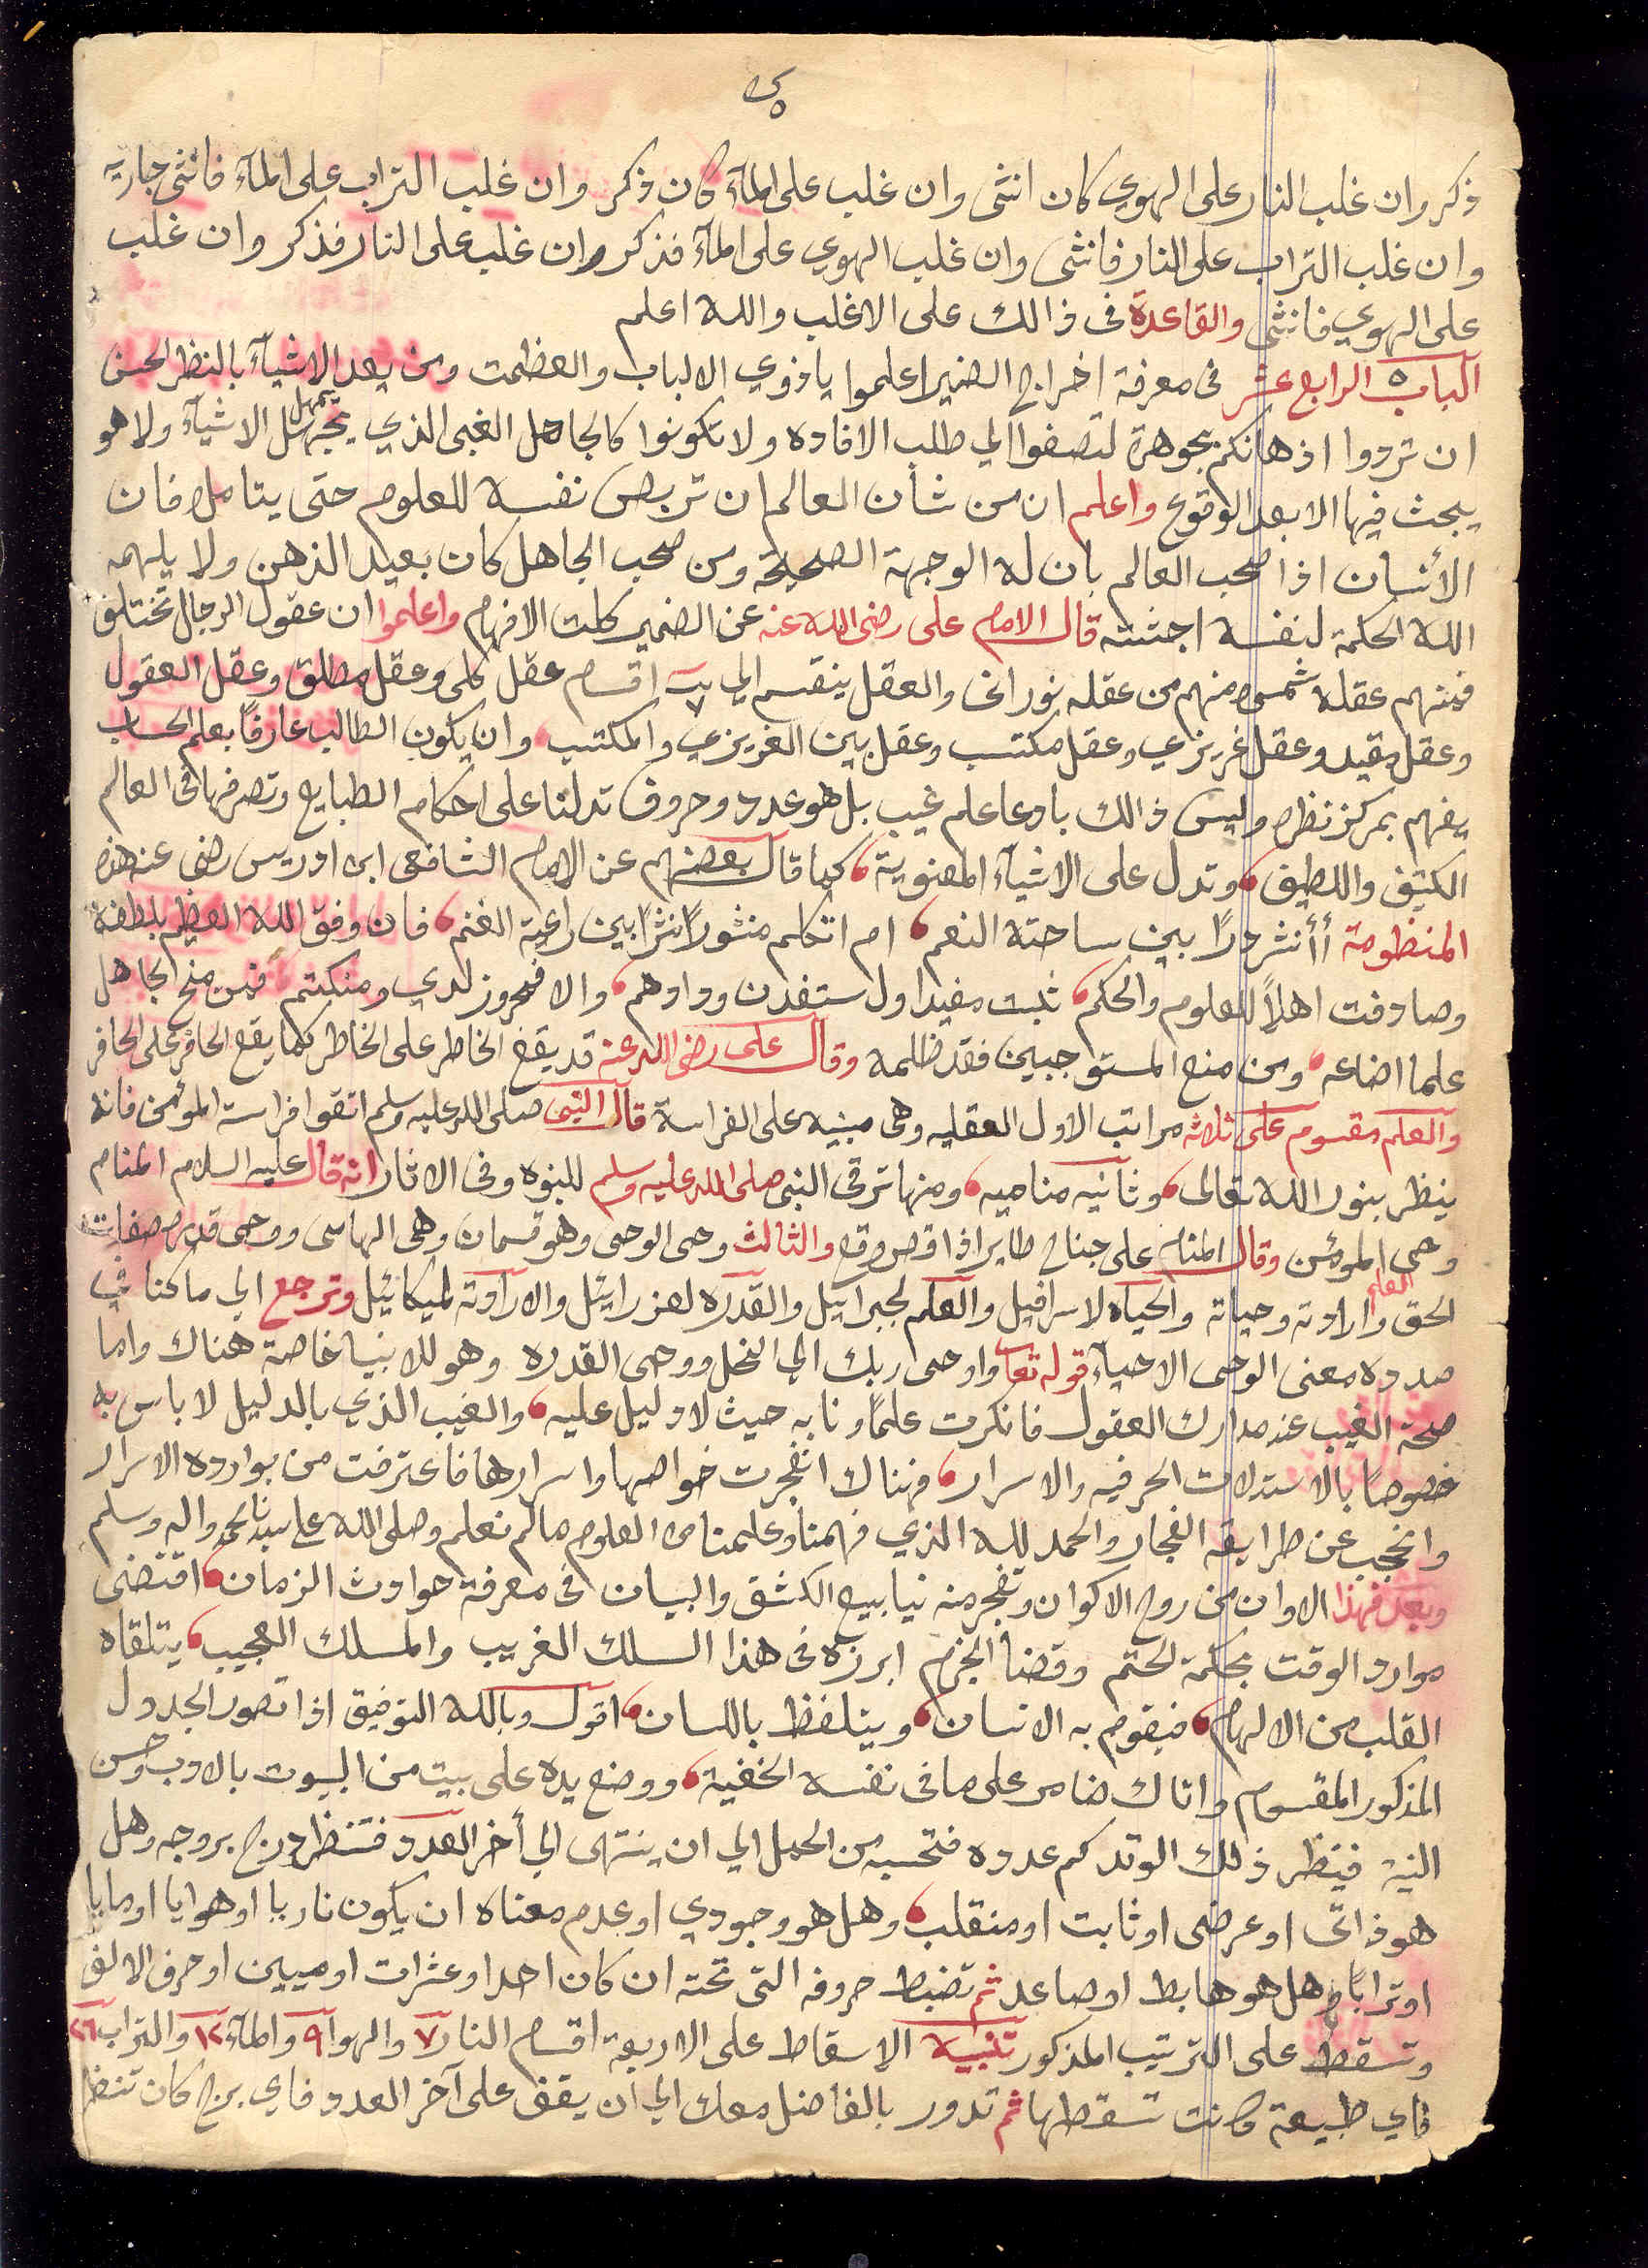 ذكر وان غلب النار على الهوي كان انثى وان غلب على المآء كان ذكر وان غلب التراب على المآء فانثى جاريه
وان غلب التراب على النار فانثى وان غلب الهوي على المآء فذكر وان غلب على النار فذكر وان غلب
على الهوي فانثى والقاعدة فى ذالك على الاغلب والله اعلم
الباب الرابع عشر فى معرفة اخراج الضمير اعلموا ياذوي الالباب والعظمت ومن يعد الاشيآء بالنظر الحسن
ان تردوا اذهانكم بجوهرة لتصغوا الي طلب الافاده ولا تكونوا كالجاهل الغبى الذي يجهل الاشيآء ولا هو
يبحث فيها الا بعد الوقوع واعلم ان من شأن العالم ان تربص نفسه للعلوم حتى يتامل فان
الأنسان اذا صحب العالم بان له الوجهة الصحيحه ومن صحب الجاهل كان بعيد الذهن ولا يلهمه
الله الحكمة لنفسه اجثته قال الامام على رضى الله عنه عن الضمير كلت الافهام واعلموا ان عقول الرجال تختلف
فمنهم عقله شمسى ومنهم من عقله نورانى والعقل ينقسم الي ٧ اقسام عقل كلى وعقل مطلق وعقل العقول
وعقل مقيد وعقل غريزي وعقل مكتسب وعقل بين الغريزي والمكتسب وان يكون الطالب عارفاً بعلم الحساب
يفهم بمركز نظره وليس ذالك بادعا علم غيب بل هو عدد وحروف تدلنا على احكام الطبايع وتصرفها فى العالم
الكثيف واللطيف وتدل على الاشيآء المعنوية كما قال بعضهم عن الامام الشافعى ابن ادريس رضى عنه هذه
المنظومة أأنثر درًا بين ساحتة النعم ام اتكلم منثوراً نثراً بين راعية الغنم فان وفق الله العظيم بلطفه
وصادفت اهلاً للعلوم والحكم ثبت مفيدا ول ستفدن ودادهم والا فمحروز لدي ومنكتم فمن منح الجاهل
علما اضاعه ومن منع المستوجبين فقد ظلمه وقال على رضى الله عنه قد يقع الخاطر على الخاطر كما يقع الحافر على الحافر
والعلم مقسوم على ثلاثه مراتب الاول العقليه وهى مبنيه على الفراسة قال النبى صلى الله عليه وسلم اتقوا فراسة المؤمن فانه
ينظر بنور الله تعالى وثانيه مناميه ومنها ترقى النبى صلى الله عليه وسلم للنبوه وفى الاثار انه قال عليه السلام المنام
وحى المؤمن وقال المنام على جناح طاير اذا قص وقع والثالث وحى الوحى وهو قسمان وهى الهامى ووحى قدره صفات
الحق العلم وارادته وحياته والحياه لاسرافيل والعلم لجبرائيل والقدره لعزرائيل والارادته لميكائيل وترجع الي ماكنا فى
صدده معنى الوحى الاحيآء قوله تعا واوحى ربك الي النحل ووحى القدره وهو للانبيا خاصة هناك واما
صحة الغيب عند مدارك العقول فانكرت علماً ونابه حيث لا دليل عليه والغيب الذي بالدليل لا باس به
خصوصاً بالاستدلات الحرفيه والاسرار فهناك انفجرت خواصها واسرارها فاعترفت من بوارده الاسرار
وانحجب عن طرايقه الفجار والحمد لله الذي فهمنا وعلمنا من العلوم مالم نعلم وصلى الله على سيدنا محمد واله وسلم
وبعد فهذا الاوان من روح الاكوان وتفجر منه نيابيع الكشف والبيان فى معرفة حوادث الزمان اقتضى
موارد الوقت بحكمة الحتم وقضا الجزم ابرزه فى هذا السلك الغريب والمسلك العجيب يتلقاه
القلب من الالهام فيقوم به الانسان ويتلفظ باللسان اقول وبالله التوفيق اذا تصور الجدول
المذكور المقسوم واتاك ضامر على ما فى نفسه الخفية ووضع يده على بيت من البيوت بالادب وحسن
النيه فينظر ذلك الوتد كم عدده فتحسبه من الحمل الي ان ينتهى الي أخر العدد فتنظر درج بروجه وهل
هو ذاتى او عرضى او ثابت او منقلب وهل هو وجودي او عدم معناه ان يكون ناريا او هوايا او مايا
او ترابًا وهل هو هابط او صاعد ثم تضبط حروفه التى تحته ان كان احدا وعشرات او ميين او حرف الالف
وتسقط على الترتيب المذكور تنبيه الاسقاط على الاربعة اقسام النار ٧ والهوا ٩ والمآء ١٢ والتراب ٢٦
فاي طبيعة كانت تسقطها ثم تدور بالفاضل معك الي ان يقف على آخر العدد فاي برج كان تنظر